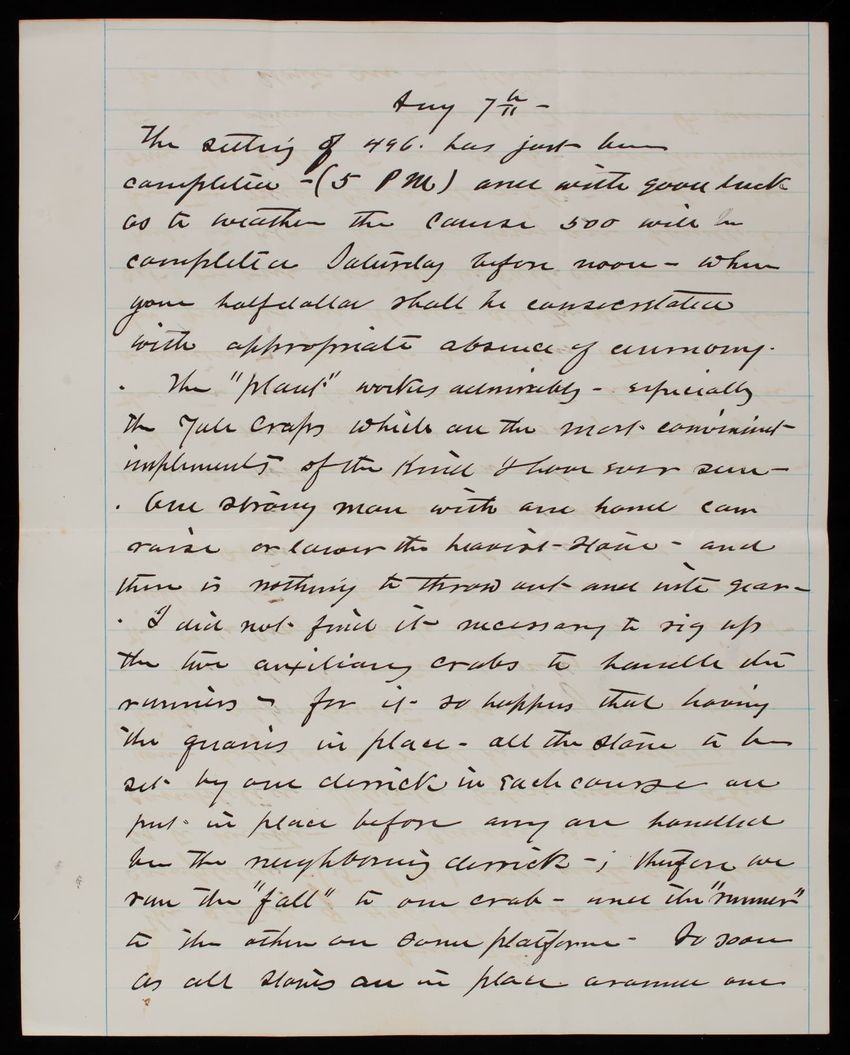 Aug 7th -
The setting of 496. has just been
completed - (5 PM) and with good luck
as to weather the course 500 will be
completed Saturday before noon - when
your half dollar shall be consecrated
with appropriate absence of ceremony.
. The "plant" works admirably - especially
the Yale Crabs which are the most convenient
implements of the kind I have ever seen -
. One strong man with one hand can
raise or lower the heaviest stone - and
there is nothing to throw out and into gear -
. I did not find it necessary to rig up
the two auxiliary crabs to handle the
runners - for it so happens that having
the quoins in place - all the stone to be
set by one derrick in each course are
put in place before any are handled
by the neighboring derrick - ; therefore we
run the "fall" to one crab - and the "runner"
to the other on same platform - So soon
as all stones are in place around one